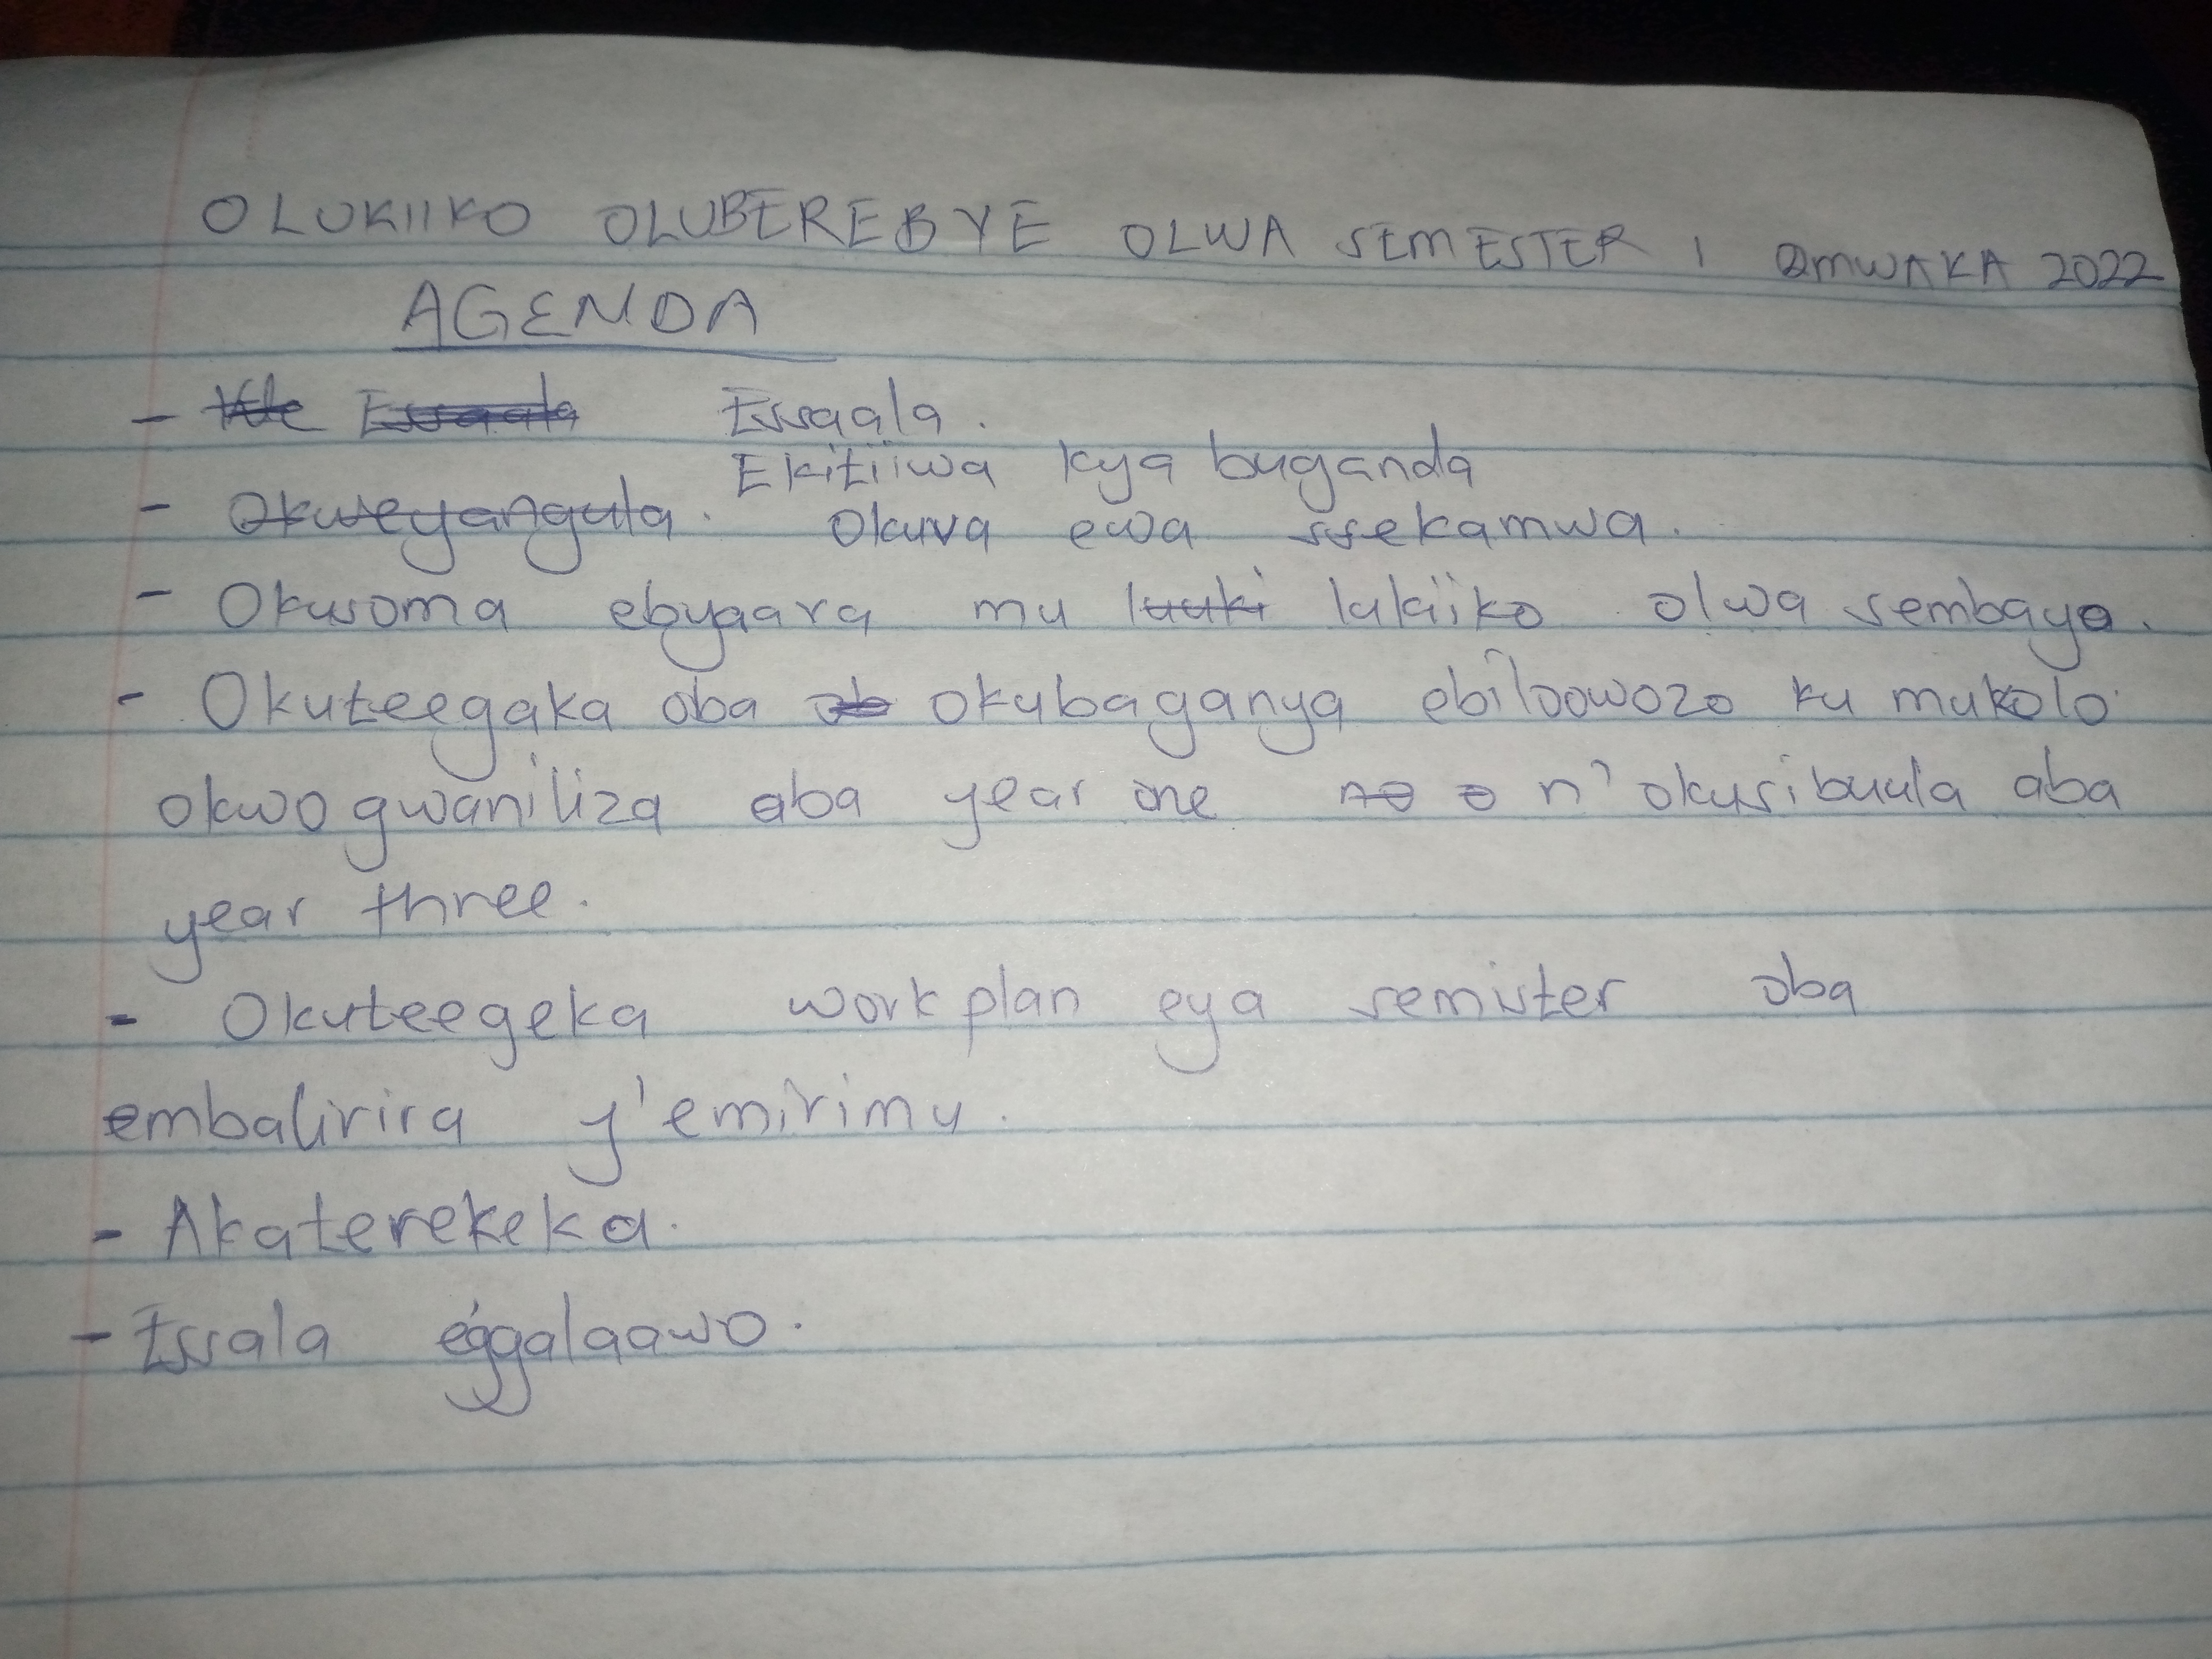 OLUKIIKO OLUBEREBYE OLWA SEMESTER 1 OMWAKA 2022
AGENDA
- Essaala.
Ekitiiwa kya buganda
- Okweyangula. Okuva ewa ssekamwa.
- Okusoma ebyaava mu lukiiko olwa sembayo.
- Okuteegaka oba okubaganya ebilowozo ku mukolo
okwogwaniliza aba year one n'okusibuula aba
year three.
- Okuteegeka workplan eya semister oba
embalirira y'emirimu.
- Akaterekeka.
- Essala eggalaawo.